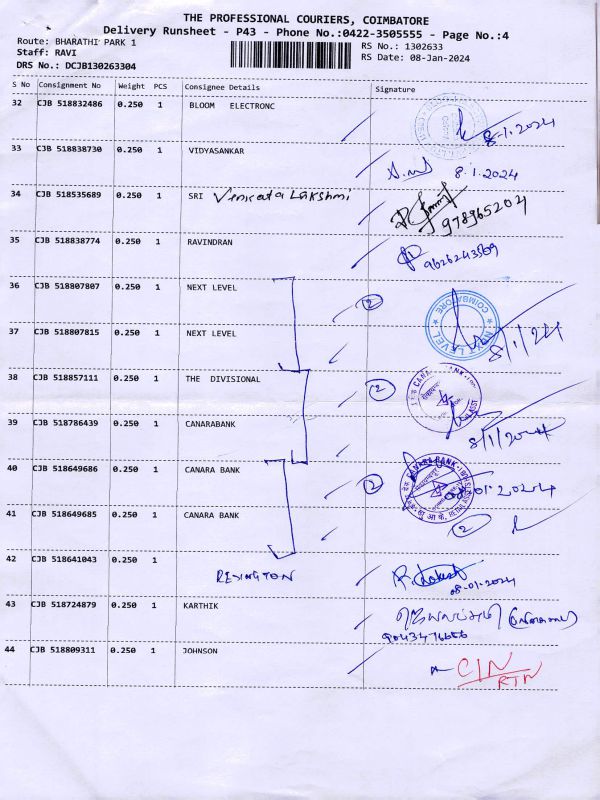 THE PROFESSIONAL COURIERS, COIMBATORE
Delivery Runsheet - P43 - Phone No.:0422-3505555 - Page No.:4
Route: BHARATHI PARK 1
Staff: RAVI
DRS No.: DCJB130263304
RS No.: 1302633
RS Date: 08-Jan-2024
S No Consignment No Weight PCS Consignee Details Signature
32 CJB 518832486 0.250 1 BLOOM ELECTRONC 8-1.2024
33 CJB 518838730 0.250 1 VIDYASANKAR 8.1.2024
34 CJB 518535689 0.250 1 SRI Venkata Lakshmi
978965204
35 CJB 518838774 0.250 1 RAVINDRAN
36 CJB 518807807 0.250 1 NEXT LEVEL 2
COIMBATORE ★ NEXT LEVEL ★
37 CJB 518807815 0.250 1 NEXT LEVEL 8/1/24
38 CJB 518857111 0.250 1 THE DIVISIONAL 2
39 CJB 518786439 0.250 1 CANARABANK 8/1/2024
40 CJB 518649686 0.250 1 CANARA BANK 2
CANARA BANK
08.01.2024
41 CJB 518649685 0.250 1 CANARA BANK 2
42 CJB 518641043 0.250 1
REXINGTON
08-01-2024
43 CJB 518724879 0.250 1 KARTHIK
9043476666
44 CJB 518809311 0.250 1 JOHNSON
CIN
RTN